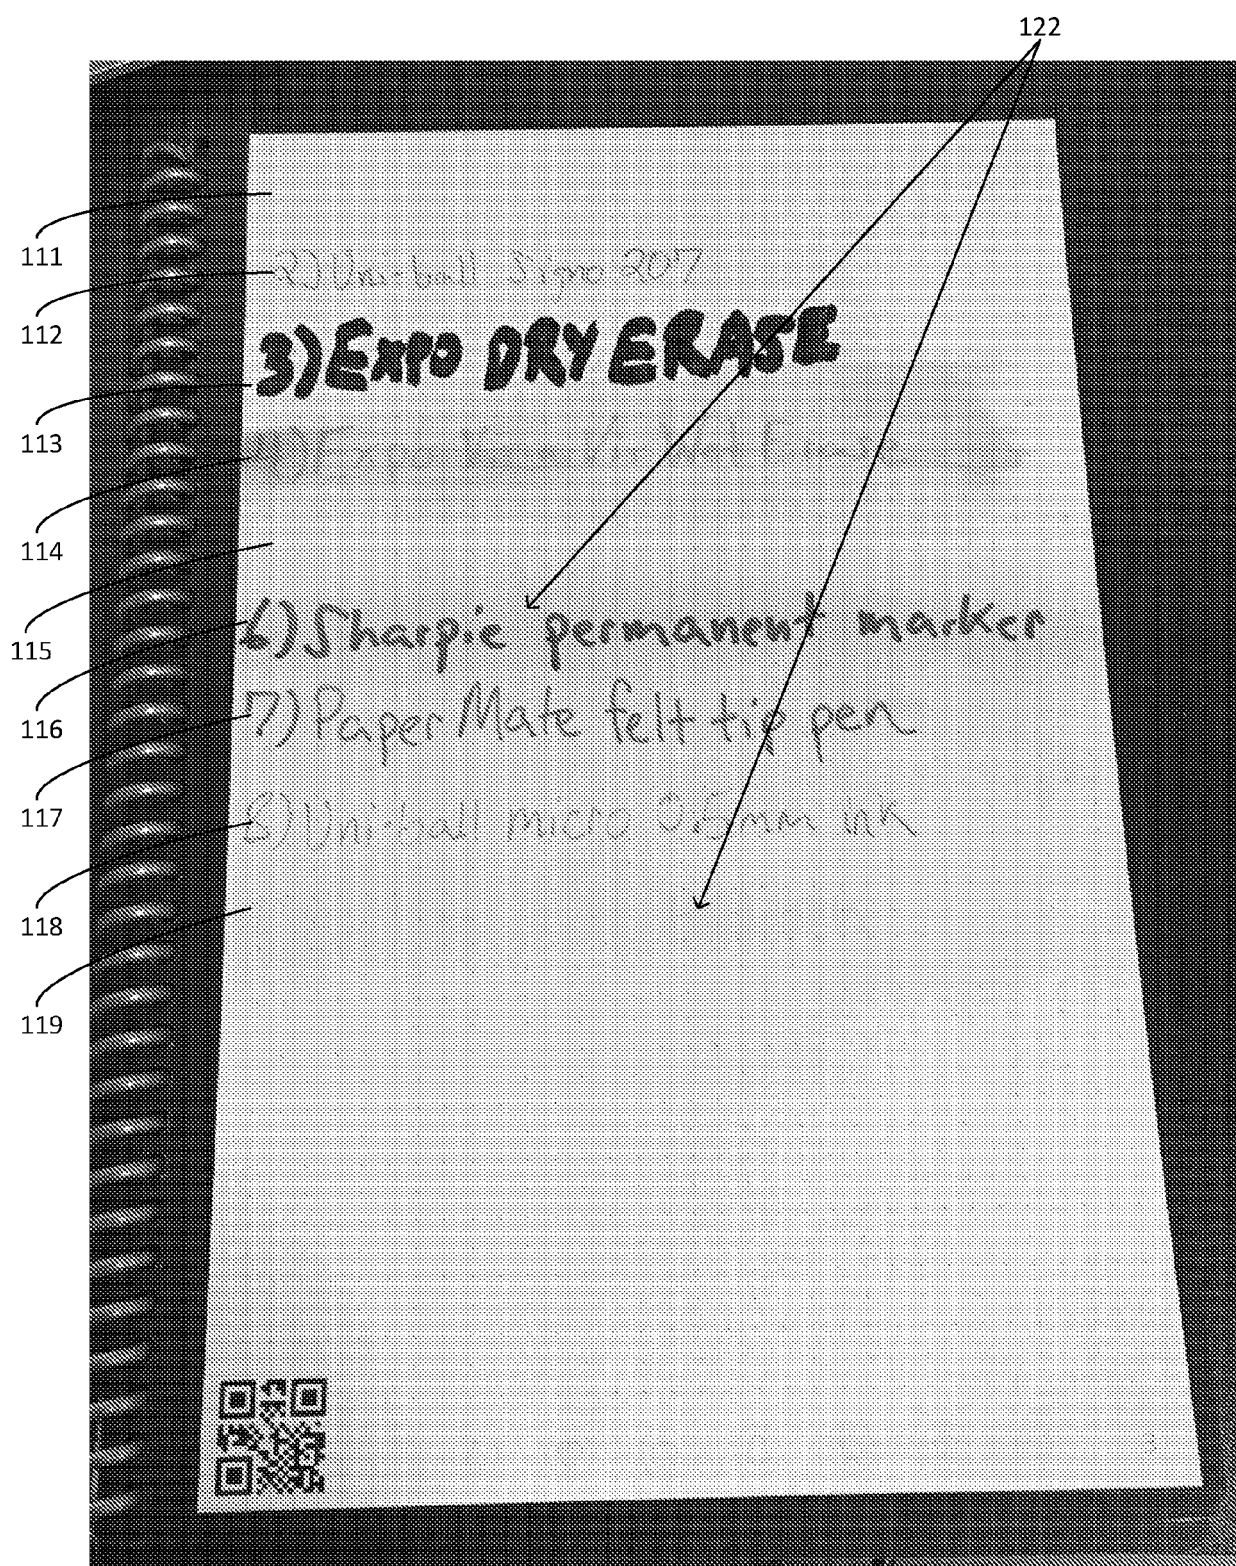 122
111
2) Uni-ball Signo 207
112
3) EXPO DRY ERASE
113
114
115
6) Sharpie permanent marker
116
7) Paper Mate felt tip pen
117
8) Uni-ball micro 0.5mm ink
118
119